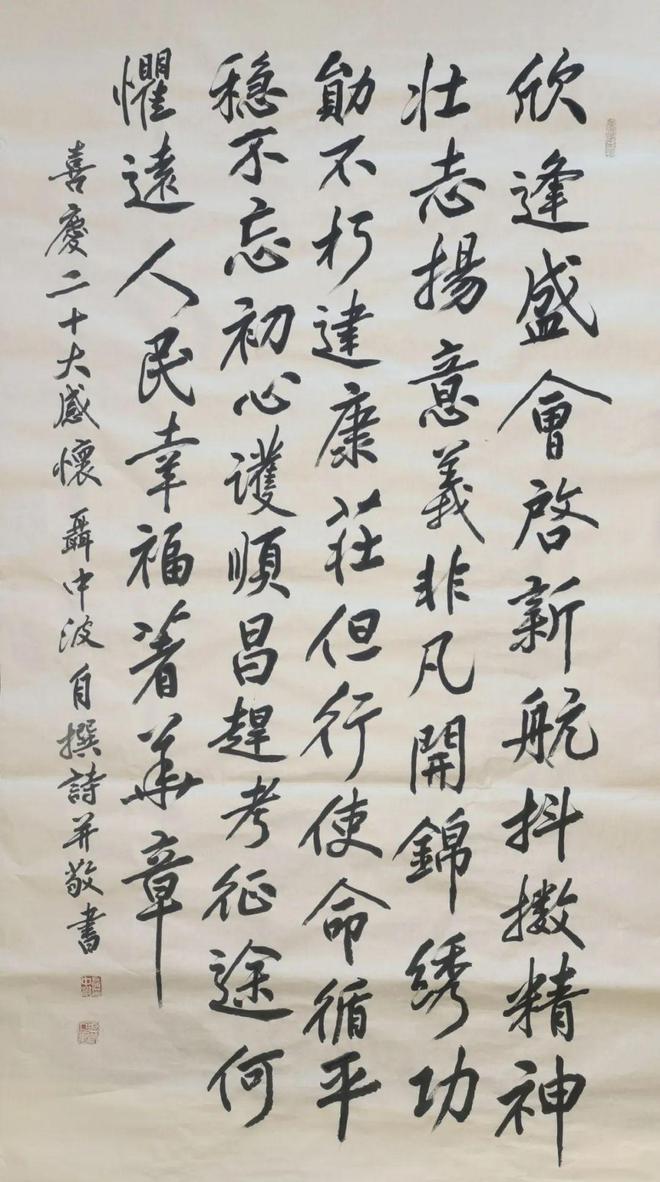 欣逢盛會啓新航抖擻精神
壯志揚意義非凡開錦綉功
勛不朽建康莊但行使命循平
穩不忘初心護順昌趕考征途何
懼遠人民幸福著華章
喜慶二十大感懷 聶中波自撰詩并敬書